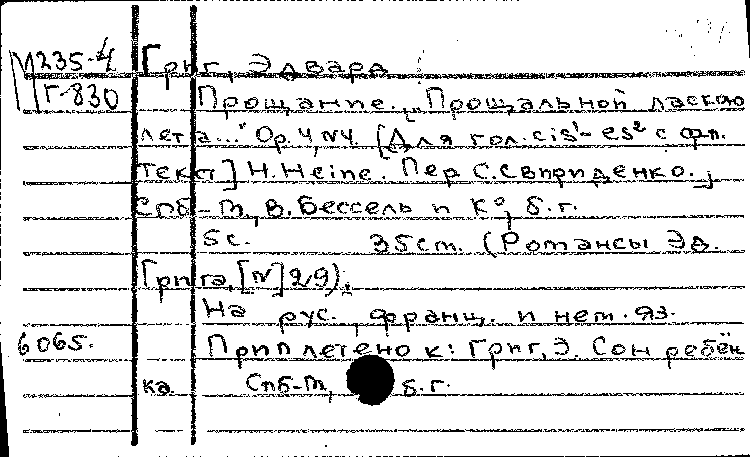 М235-4 Григ, Эдвард
Г-830 Прощание. „Прощальной ласкою
лета..." Op. 4, N4. [Для гол. cis¹- es² с фп.
Текст] H. Heine. Пер С. Свириденко.
Спб-М, В. Бессель и К°, б.г.
5с. 35cm. (Романсы Эд.
Грига, [N] 29).
На рус., франц. и нем. яз.
6065. Приплетено к: Григ, Э. Сон ребён
ка Спб-М, б.г.